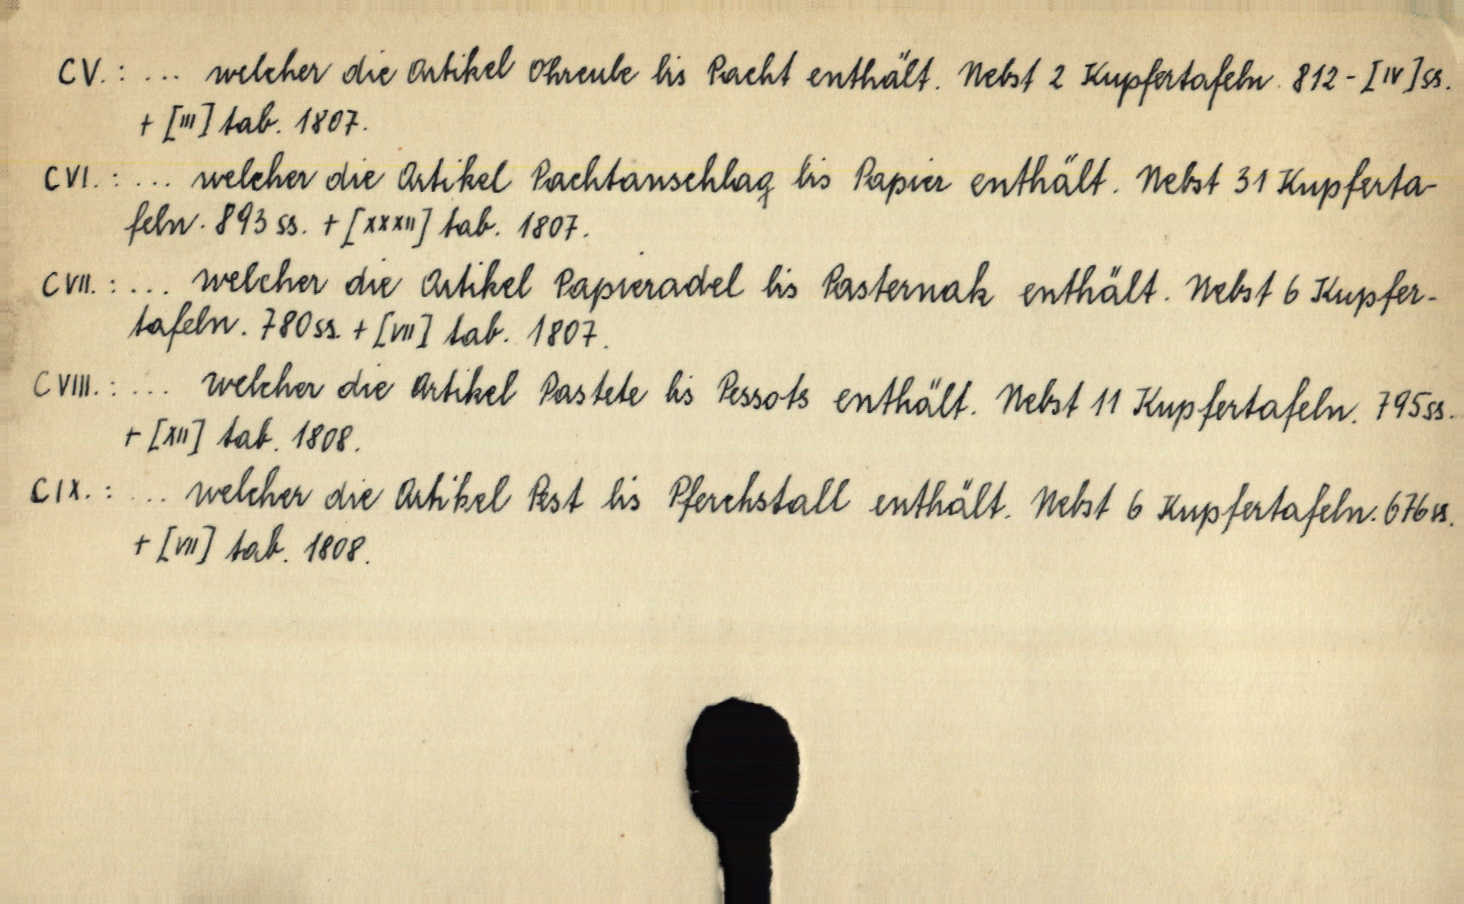 CV. : ... welcher die Artikel Ohreule bis Pacht enthält. Nebst 2 Kupfertafeln. 812 - [IV] ss.
+ [III] tab. 1807.
CVI. : ... welcher die Artikel Pachtanschlag bis Papier enthält. Nebst 31 Kupferta-
feln. 893 ss. + [XXXII] tab. 1807.
CVII. : ... welcher die Artikel Papieradel bis Pasternak enthält. Nebst 6 Kupfer-
tafeln. 780 ss. + [VII] tab. 1807.
CVIII. : ... welcher die Artikel Pastete bis Pessots enthält. Nebst 11 Kupfertafeln. 795 ss.
+ [XII] tab. 1808.
CIX. : ... welcher die Artikel Pest bis Pferchstall enthält. Nebst 6 Kupfertafeln. 676 ss.
+ [VII] tab. 1808.